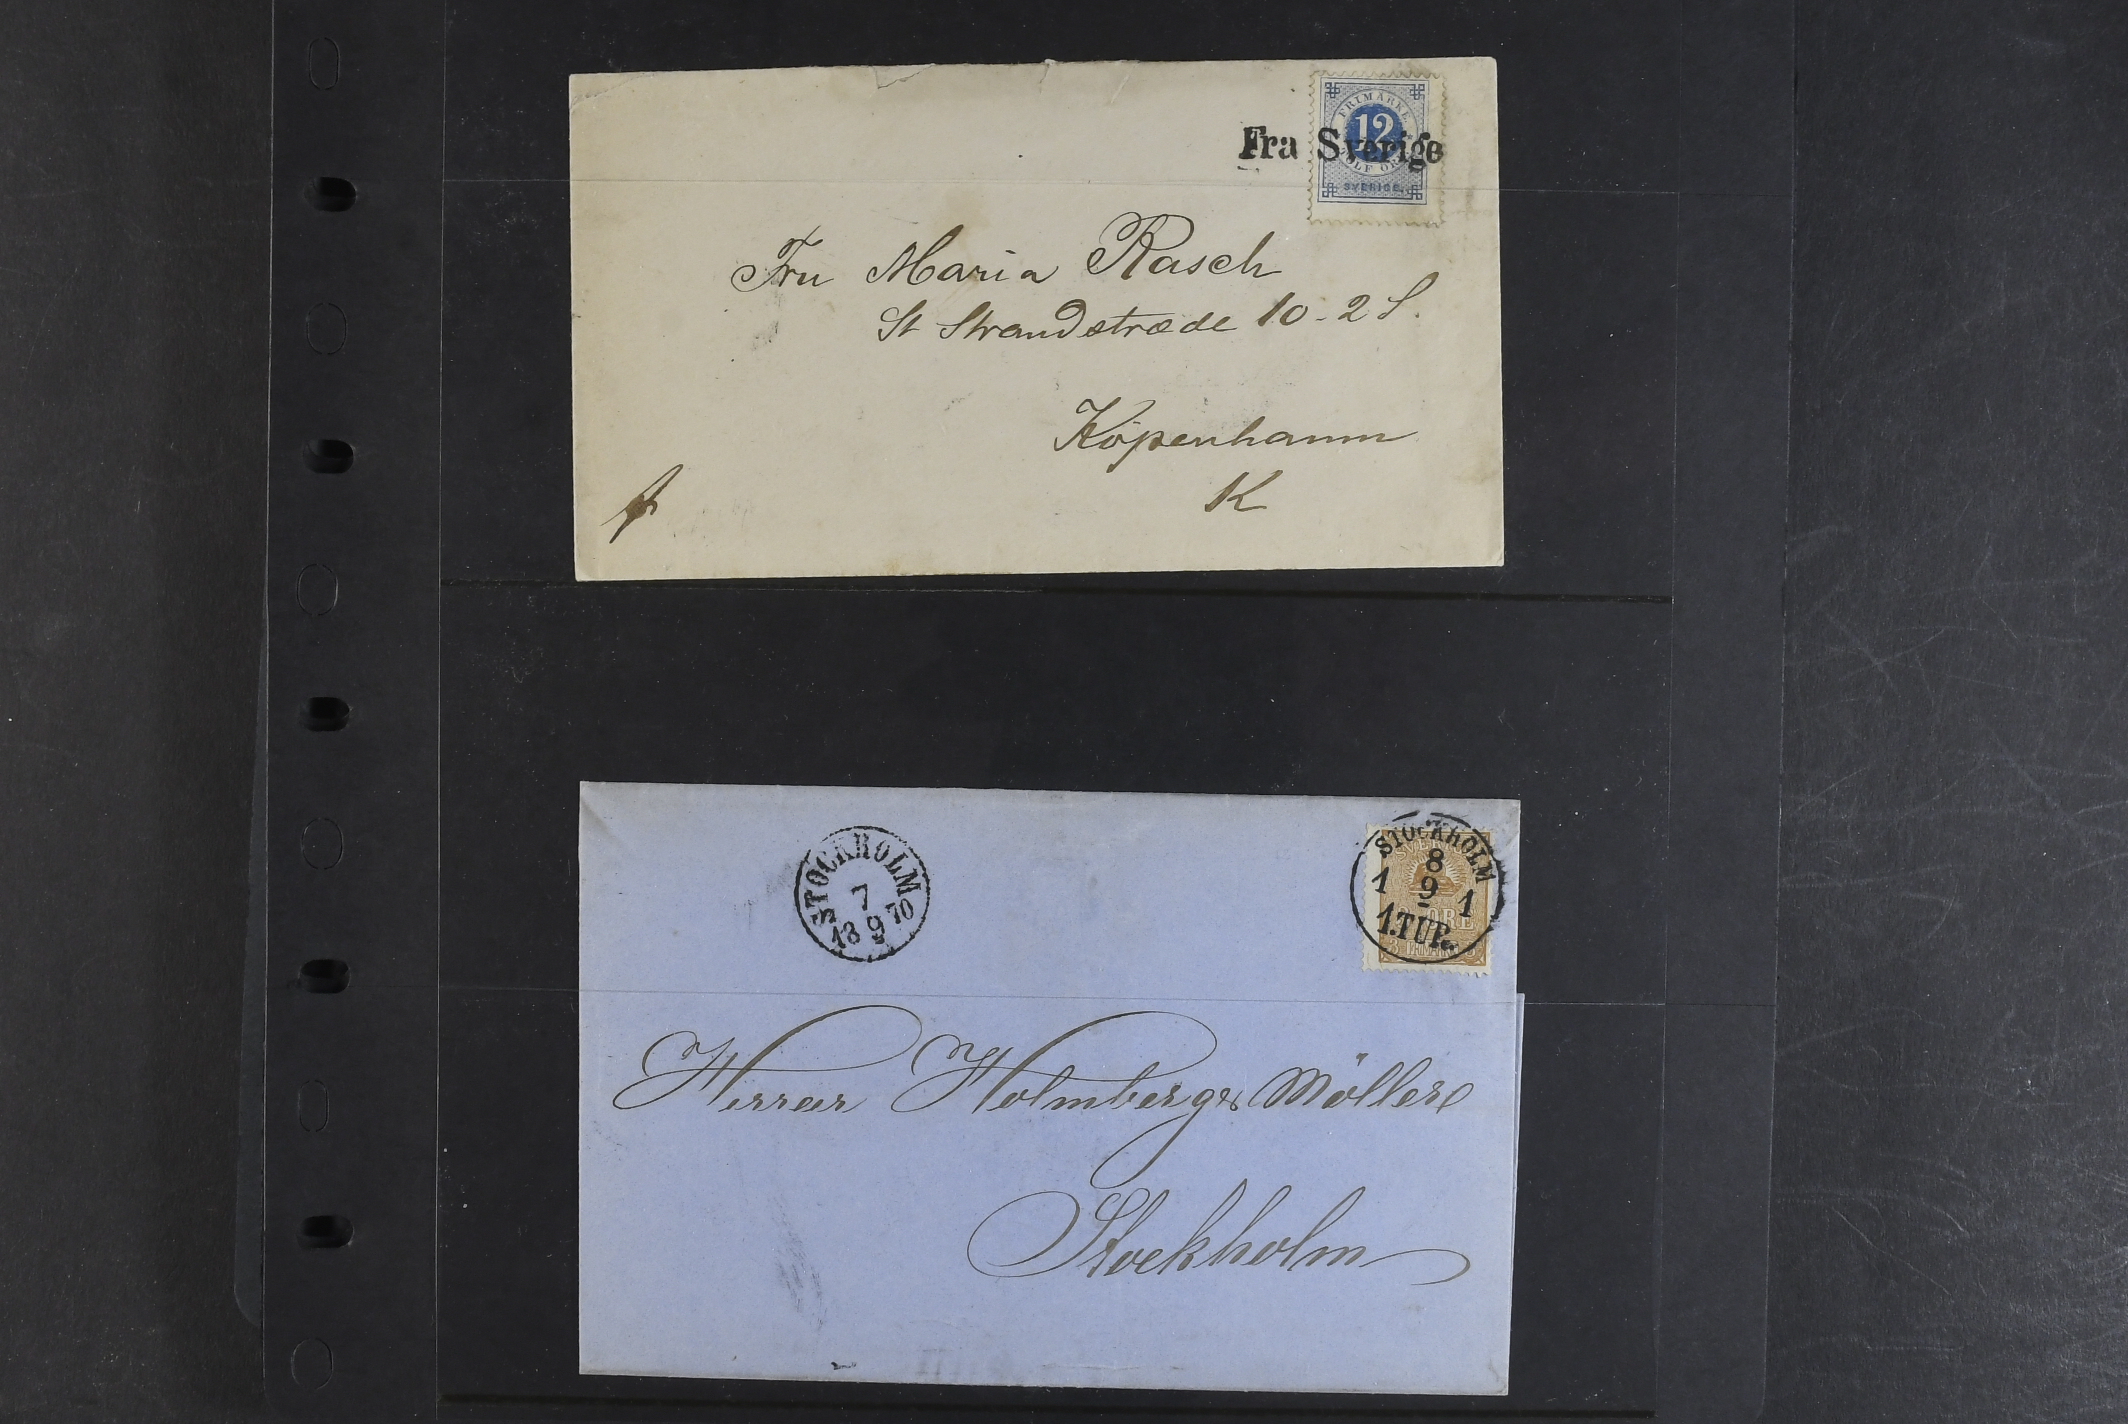 FRIMÄRKE
12
TOLF ÖRE
SVERIGE.
Fra Sverige
Fru Maria Rasch
St Strandstræde 10-2 S.
Köpenhamn
K
STOCKHOLM
7
18 9 70
STOCKHOLM
8
1 9 1
1.TUR.
SVERIGE
ÖRE
3 FRIMÄRKE 3
Herrar Holmberg & Möller
Stockholm